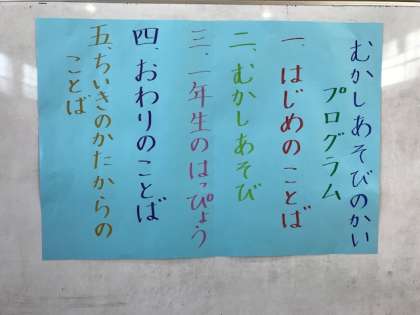 むかしあそびのかい
プログラム
一、はじめのことば
二、むかしあそび
三、一年生のはっぴょう
四、おわりのことば
五、ちいきのかたからの
ことば